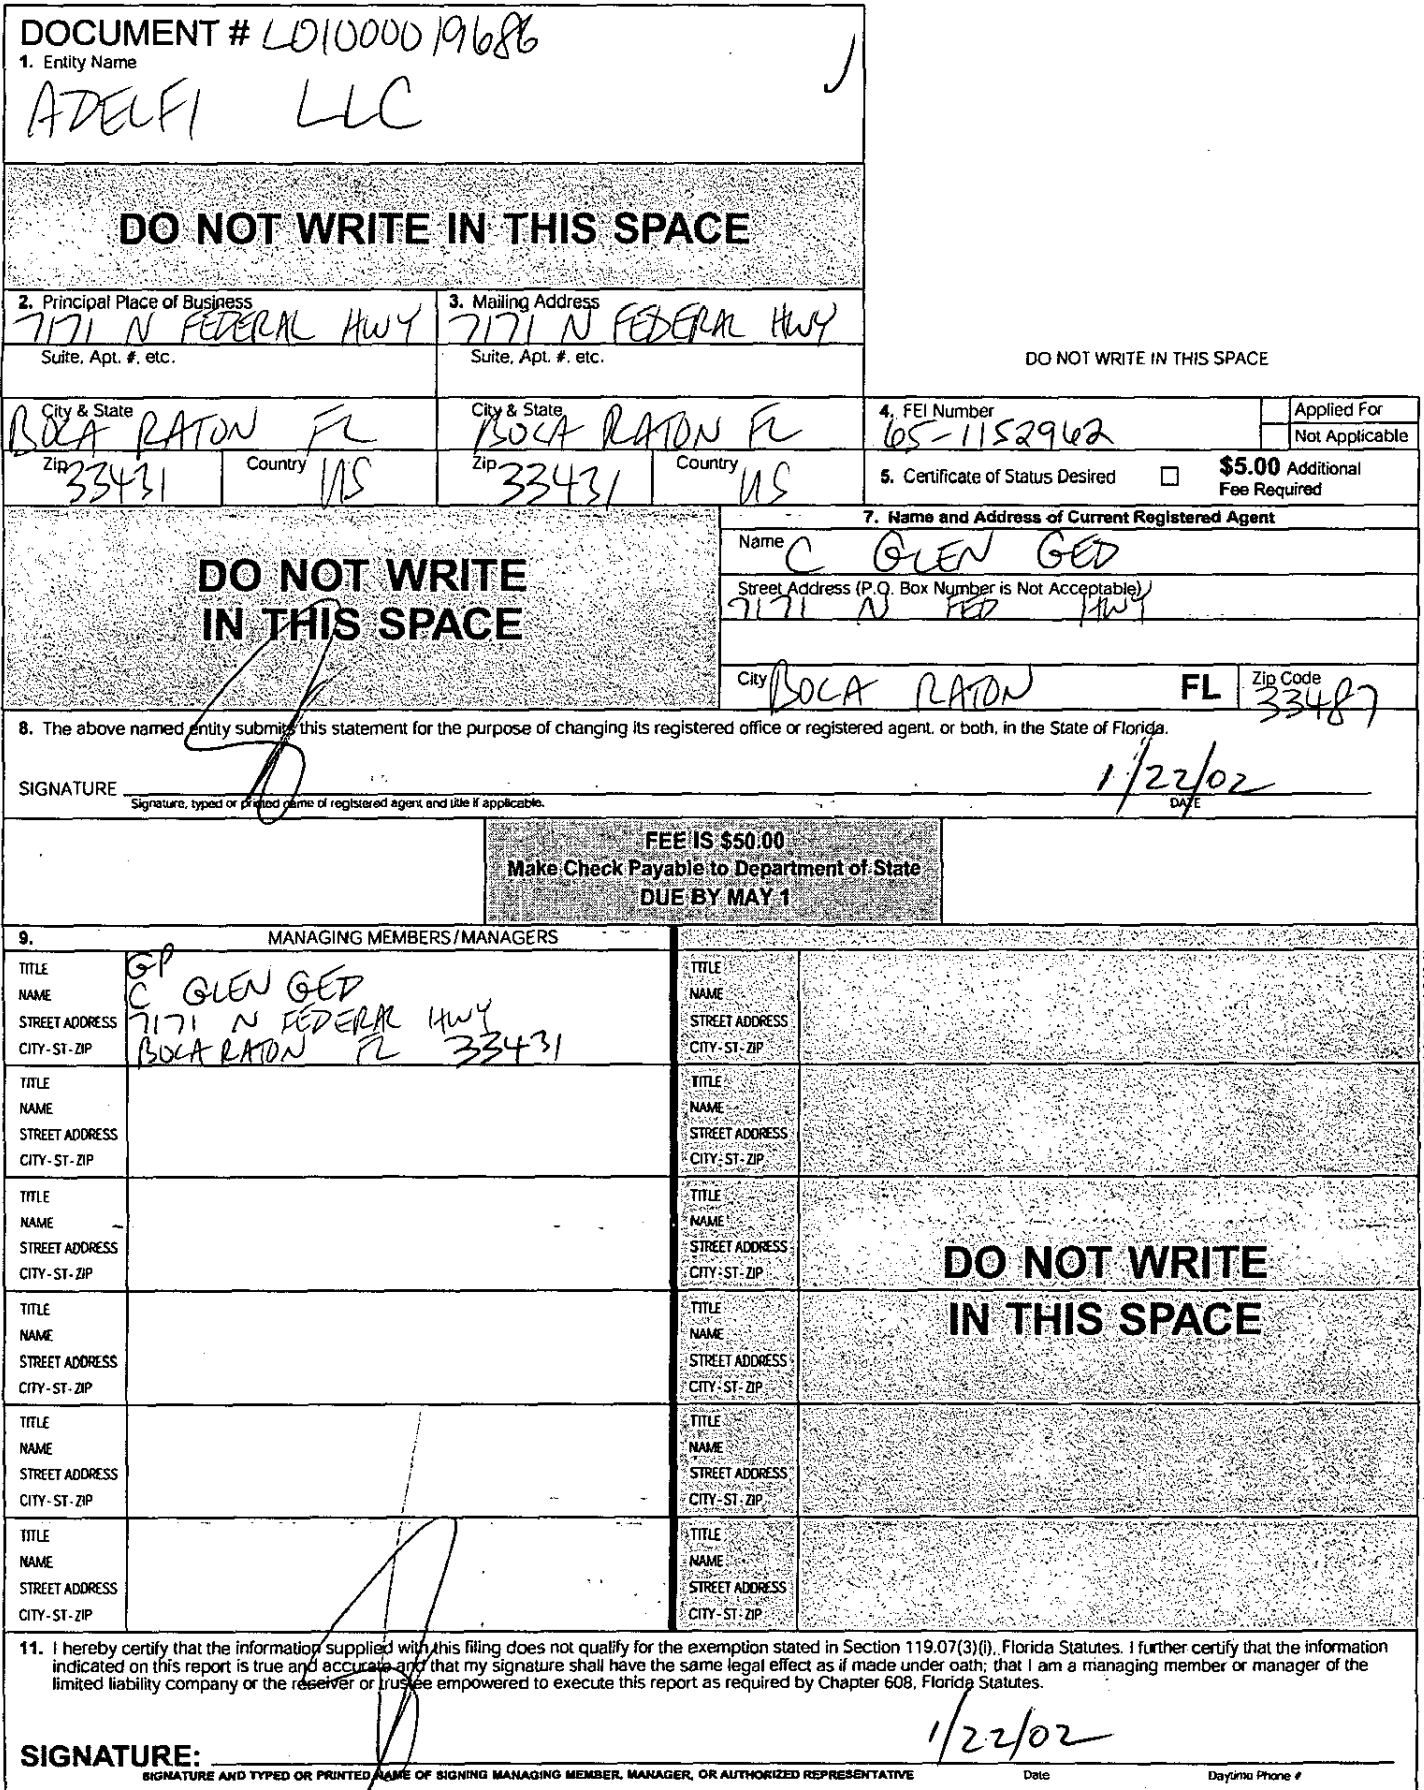 DOCUMENT # L01000019686
1. Entity Name
ADELFI LLC
DO NOT WRITE IN THIS SPACE
2. Principal Place of Business
7171 N FEDERAL HWY
3. Mailing Address
7171 N FEDERAL HWY
Suite, Apt. #, etc.
Suite, Apt. #, etc.
DO NOT WRITE IN THIS SPACE
City & State
BOCA RATON FL
City & State
BOCA RATON FL
4. FEI Number
65-1152962
Applied For
Not Applicable
Zip 33431
Country US
Zip 33431
Country US
5. Certificate of Status Desired
$5.00 Additional
Fee Required
DO NOT WRITE
IN THIS SPACE
7. Name and Address of Current Registered Agent
Name C GLEN GED
Street Address (P.O. Box Number is Not Acceptable)
7171 N FED HWY
City BOCA RATON FL Zip Code 33487
8. The above named entity submits this statement for the purpose of changing its registered office or registered agent, or both, in the State of Florida.
SIGNATURE
1/22/02
Signature, typed or printed name of registered agent and title if applicable.
DATE
FEE IS $50.00
Make Check Payable to Department of State
DUE BY MAY 1
9. MANAGING MEMBERS/MANAGERS
TITLE GP
NAME C GLEN GED
STREET ADDRESS 7171 N FEDERAL HWY
CITY-ST-ZIP BOCA RATON FL 33431
TITLE
NAME
STREET ADDRESS
CITY-ST-ZIP
TITLE
NAME
STREET ADDRESS
CITY-ST-ZIP
TITLE
NAME
STREET ADDRESS
CITY-ST-ZIP
TITLE
NAME
STREET ADDRESS
CITY-ST-ZIP
TITLE
NAME
STREET ADDRESS
CITY-ST-ZIP
TITLE
NAME
STREET ADDRESS
CITY-ST-ZIP
TITLE
NAME
STREET ADDRESS
CITY-ST-ZIP
TITLE
NAME
STREET ADDRESS
CITY-ST-ZIP
TITLE
NAME
STREET ADDRESS
CITY-ST-ZIP
TITLE
NAME
STREET ADDRESS
CITY-ST-ZIP
TITLE
NAME
STREET ADDRESS
CITY-ST-ZIP
DO NOT WRITE
IN THIS SPACE
11. I hereby certify that the information supplied with this filing does not qualify for the exemption stated in Section 119.07(3)(i), Florida Statutes. I further certify that the information
indicated on this report is true and accurate and that my signature shall have the same legal effect as if made under oath; that I am a managing member or manager of the
limited liability company or the receiver or trustee empowered to execute this report as required by Chapter 608, Florida Statutes.
SIGNATURE:
1/22/02
SIGNATURE AND TYPED OR PRINTED NAME OF SIGNING MANAGING MEMBER, MANAGER, OR AUTHORIZED REPRESENTATIVE
Date
Daytime Phone #